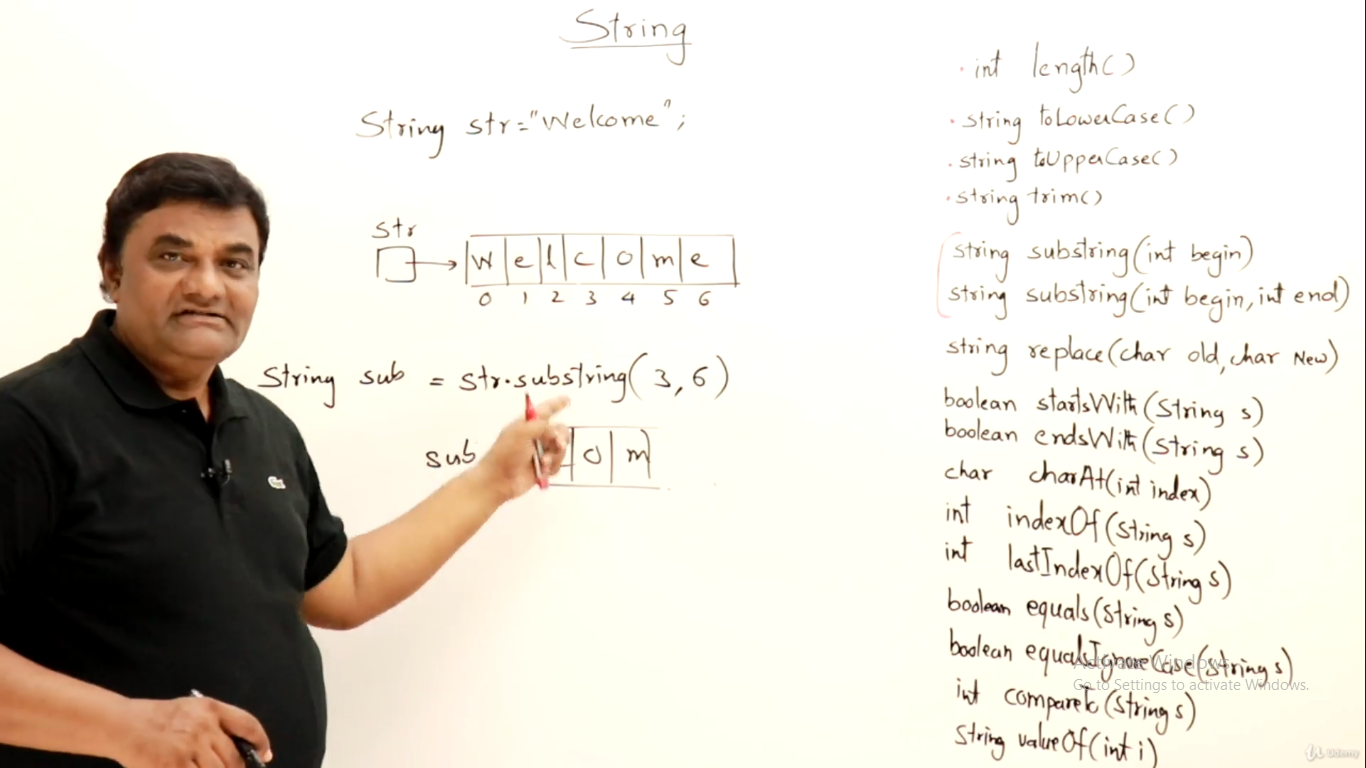 String
String str="Welcome";
str
W e l c o m e
0 1 2 3 4 5 6
String sub = str.substring(3,6)
sub
o m
int length()
string toLowerCase()
string toUpperCase()
string trim()
string substring(int begin)
string substring(int begin, int end)
string replace(char old, char New)
boolean startsWith(String s)
boolean endsWith(String s)
char charAt(int index)
int indexOf(String s)
int lastIndexOf(String s)
boolean equals(String s)
boolean equalsIgnoreCase(String s)
int compareTo(String s)
String valueOf(int i)
Activate Windows
Go to Settings to activate Windows.
Udemy